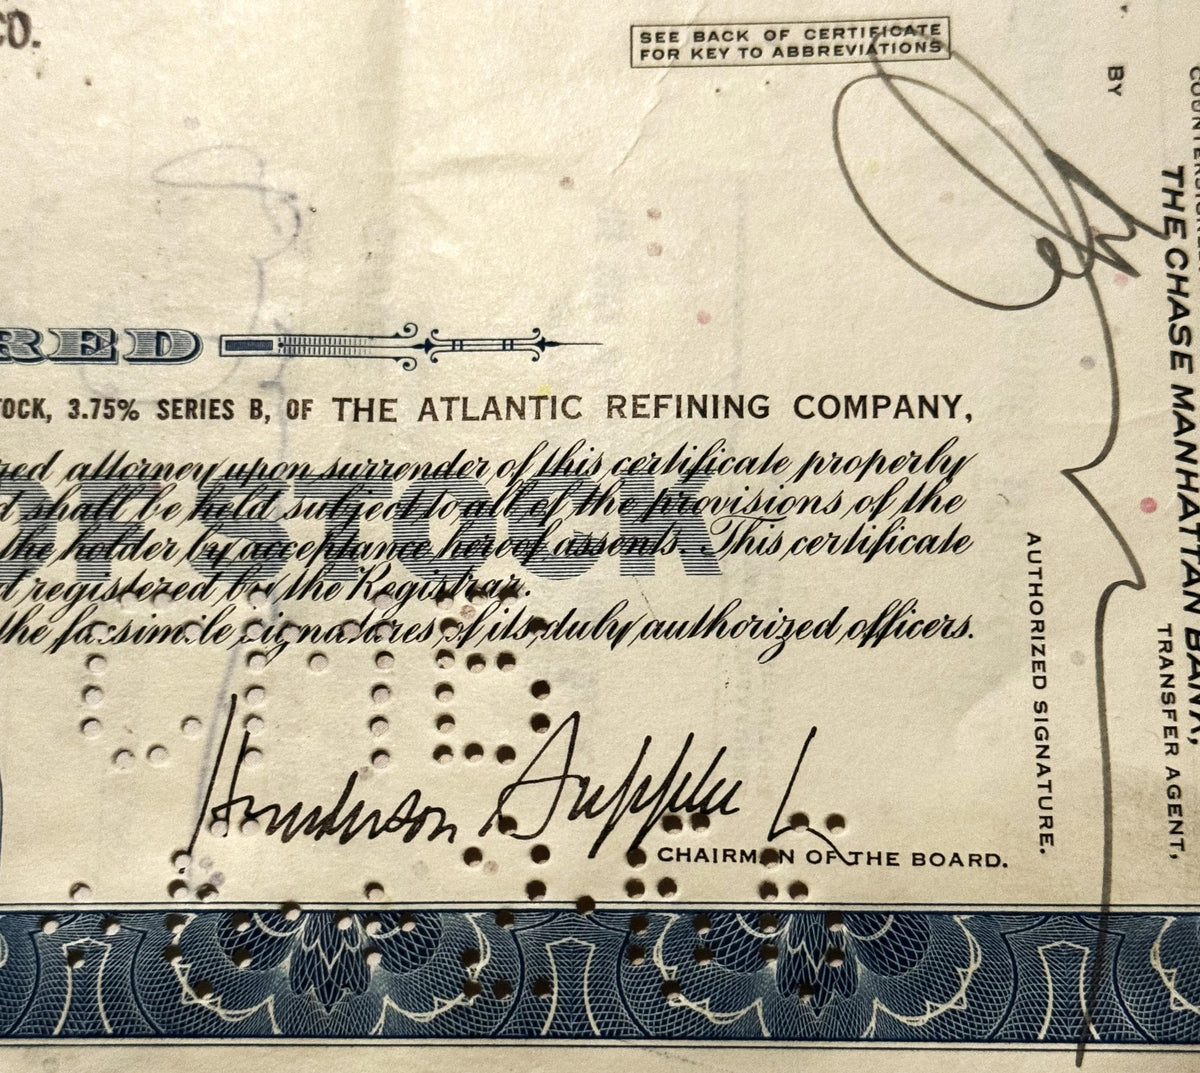 CO.
SEE BACK OF CERTIFICATE
FOR KEY TO ABBREVIATIONS
RED
STOCK, 3.75% SERIES B, OF THE ATLANTIC REFINING COMPANY,
attorney upon surrender of this certificate properly
shall be held subject to all of the provisions of the
the holder by acceptance hereof assents. This certificate
registered by the Registrar.
the facsimile signatures of its duly authorized officers.
OF STOCK
Henderson Supplee
CHAIRMAN OF THE BOARD.
BY
THE CHASE MANHATTAN BANK,
TRANSFER AGENT,
AUTHORIZED SIGNATURE.